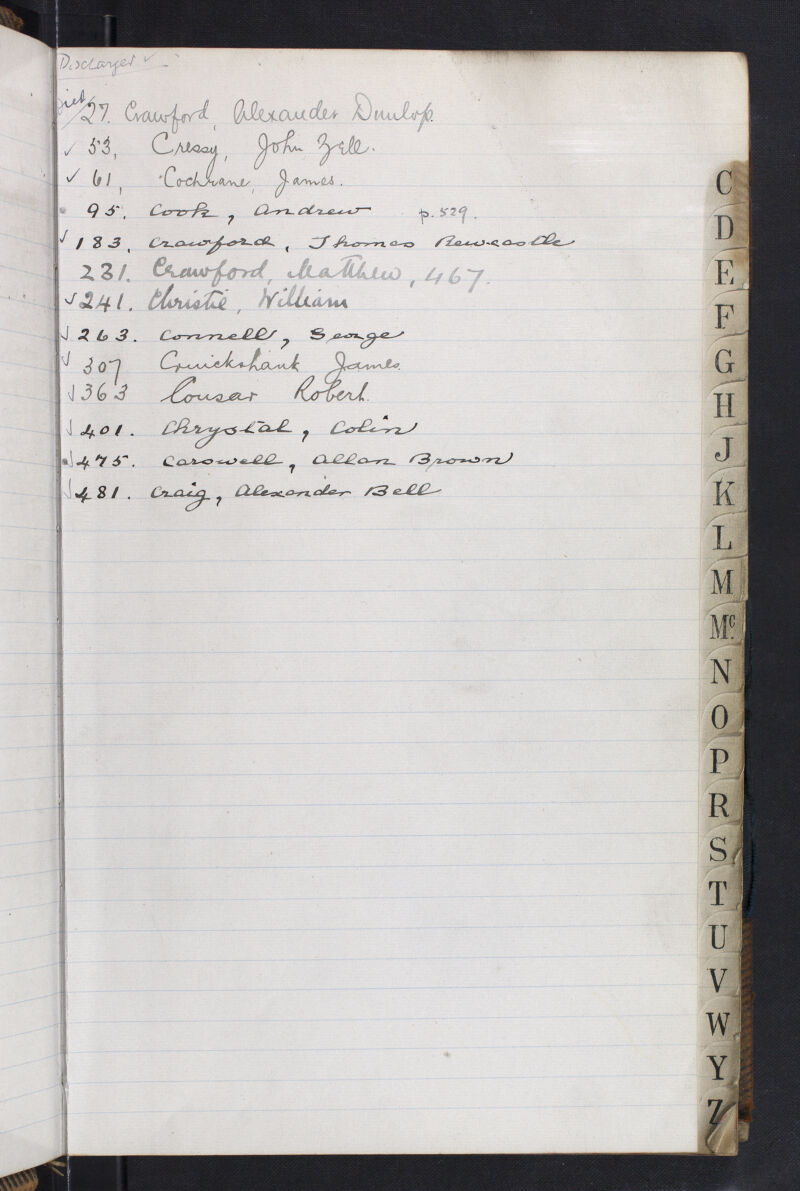 Discharged ✓
Died
27. Crawford, Alexander Dunlop.
✓ 53, Cressy, John Zell.
✓ 61, Cochrane, James.
95. Cook, Andrew p. 529.
✓ 183. Crawford, Thomas Newcastle
231. Crawford, Matthew, 467.
✓ 241. Christie, William
✓ 263. Connell, George
✓ 307 Cruickshank James.
✓ 363 Cousar Robert.
✓ 401. Chrystal, Colin
✓ 475. Carswell, Allan Brown
✓ 481. Craig, Alexander Bell
C
D
E
F
G
H
J
K
L
M
Mc.
N
O
P
R
S
T
U
V
W
Y
Z